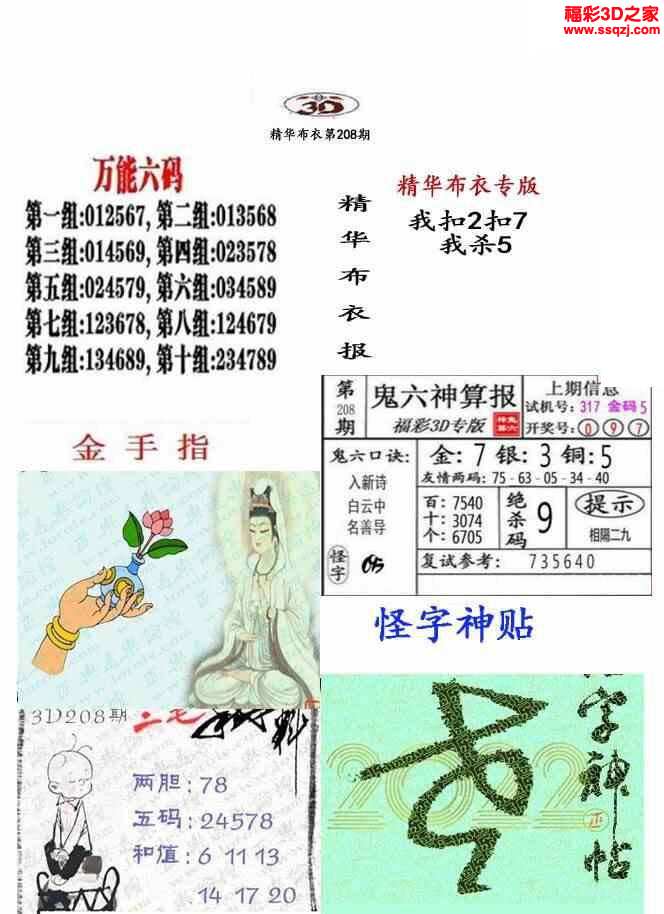 福彩3D之家
www.ssqzj.com
3D
精华布衣第208期
万能六码
第一组:012567, 第二组:013568
第三组:014569, 第四组:023578
第五组:024579, 第六组:034589
第七组:123678, 第八组:124679
第九组:134689, 第十组:234789
精华布衣报
精华布衣专版
我扣2扣7
我杀5
金手指
第208期
鬼六神算报
福彩3D专版
上期信息
试机号: 317 金码 5
开奖号: 0 9 7
鬼六口诀:
入新诗
白云中
名善导
怪字
金: 7 银: 3 铜: 5
友情两码: 75-63-05-34-40
百: 7540
十: 3074
个: 6705
绝杀码 9
提示
相隔二九
复试参考: 735640
怪字神贴
3D208期
两胆: 78
五码: 24578
和值: 6 11 13
14 17 20
2022
字神帖